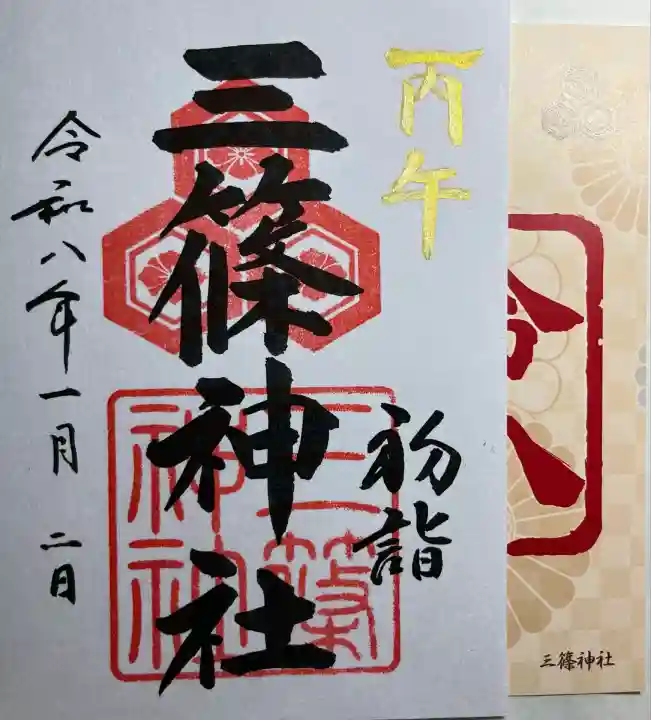 丙午
三篠神社
初詣
令和八年一月二日
三篠神社
三篠神社